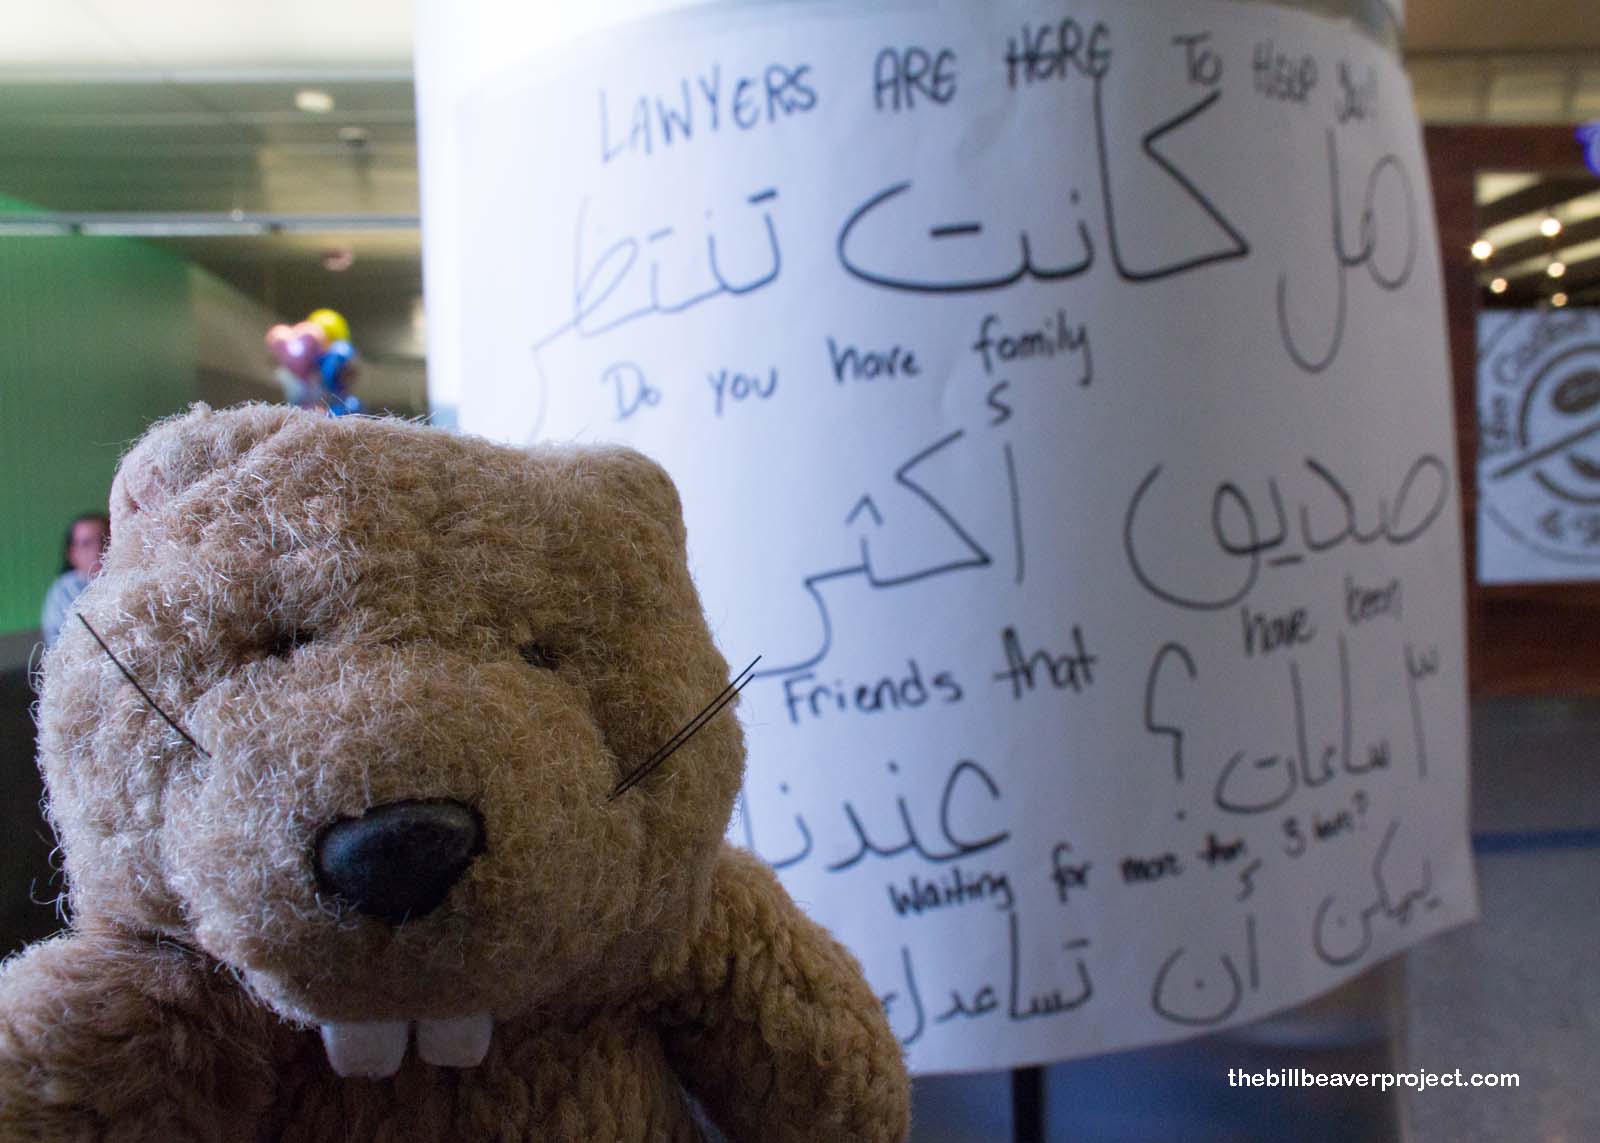 LAWYERS ARE HERE TO HELP YOU!
هل كانت تنتظر
Do you have family
صديق أكثر
Friends that have been
٣ ساعات؟ عندنا
Waiting for more than 3 hours?
يمكن أن تساعدك
thebillbeaverproject.com